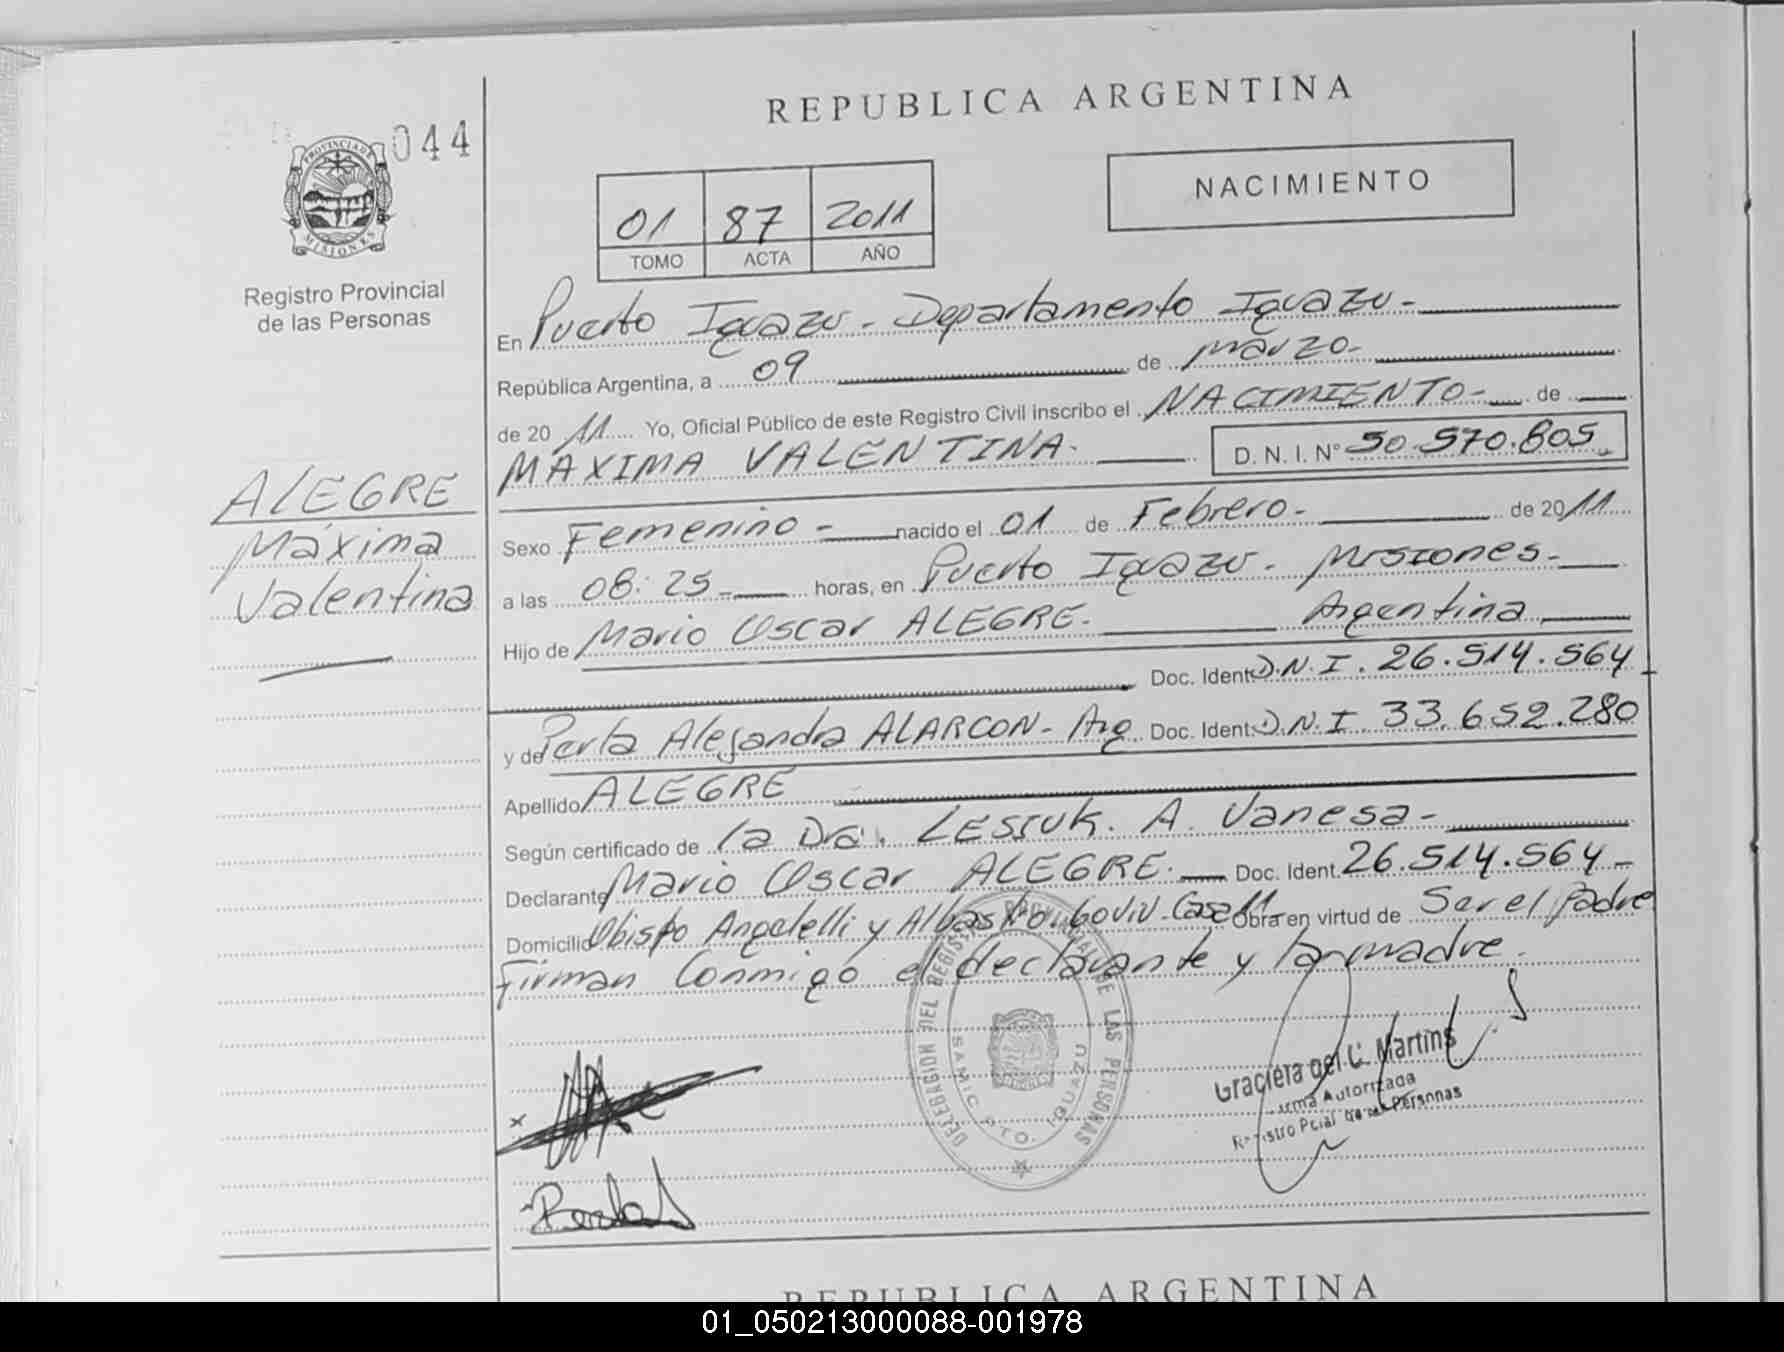 044
PROVINCIA DE
MISIONES
Registro Provincial
de las Personas
ALEGRE
Máxima
Valentina
REPUBLICA ARGENTINA
NACIMIENTO
01 87 2011
TOMO ACTA AÑO
En Puerto Iguazu - Departamento Iguazu -
República Argentina, a 09 de Marzo -
de 20 11 Yo, Oficial Público de este Registro Civil inscribo el NACIMIENTO - de
MAXIMA VALENTINA - D. N. I. N° 50.570.805
Sexo Femenino - nacido el 01 de Febrero - de 20 11
a las 08:25 - horas, en Puerto Iguazu - Misiones -
Hijo de Mario Oscar ALEGRE - Argentina
Doc. Ident. D.N.I. 26.514.564
y de Perla Alejandra ALARCON - Arg Doc. Ident. D.N.I 33.652.280
Apellido ALEGRE
Según certificado de la Dra. LESIUK. A. Vanesa -
Declarante Mario Oscar ALEGRE - Doc. Ident. 26.514.564 -
Domicilio Obispo Angelelli y Casa 11 - Obra en virtud de Ser el padre
Firman Conmigo el declarante y la madre.
DELEGACION DEL REGISTRO PROVINCIAL DE LAS PERSONAS
SAMIC PTO. IGUAZU
Graciela del C. Martins
Firma Autorizada
Registro Pcial de las Personas
x
REPUBLICA ARGENTINA
01_050213000088-001978